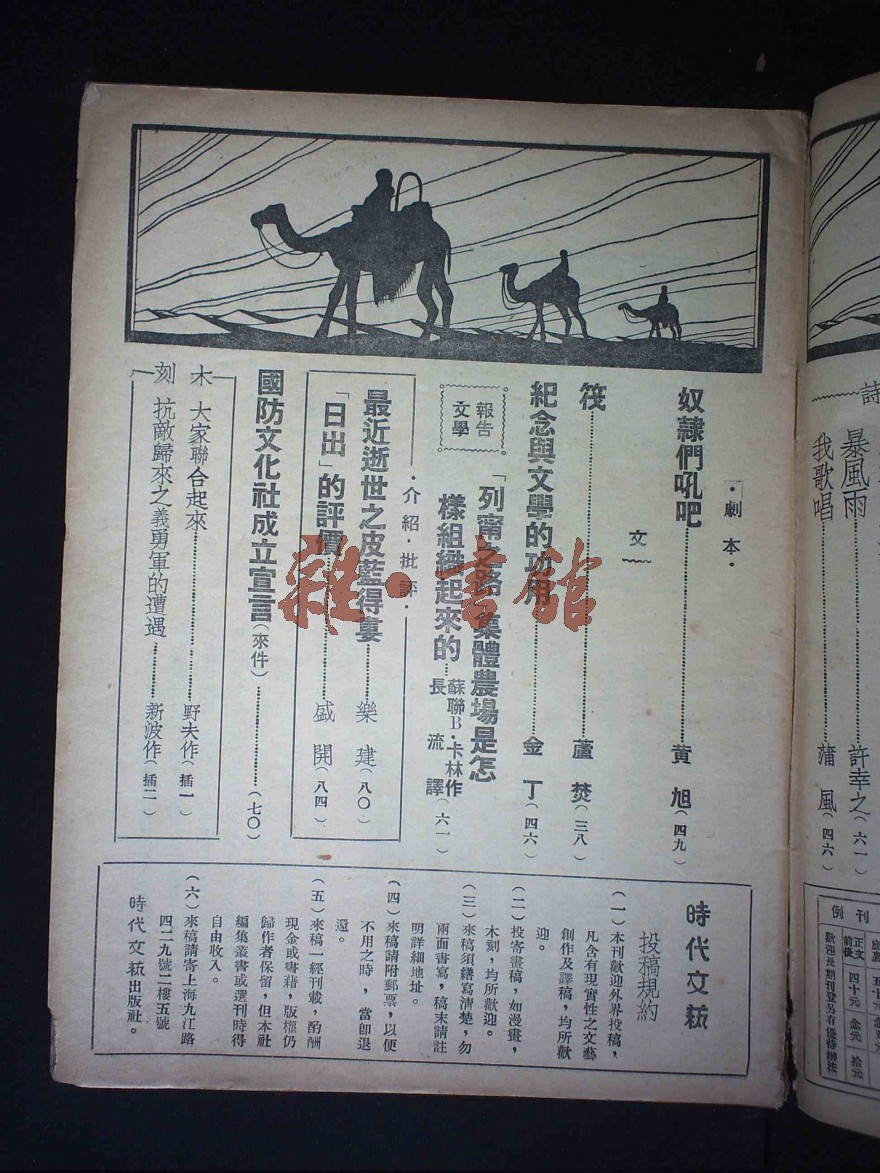 ・劇本・
奴隸們吼吧……黃旭(四九)
文
筏……蘆焚(三八)
紀念與文學的功用……金丁(四六)
報告
文學
「列甯之路」集體農場是怎
樣組織起來的…蘇聯B・卡林作
長流譯(六一)
・介紹・批評・
最近逝世之皮藍得婁……樂建(八〇)
「日出」的評價……盛開(八四)
國防文化社成立宣言(來件)……(七〇)
木刻
大家聯合起來……野夫作(插一)
抗敵歸來之義勇軍的遭遇……新波作(插二)
時代文藝
投稿規約
(一)本刊歡迎外界投稿,
凡含有現實性之文藝
創作及譯稿,均所歡
迎。
(二)投寄畫稿,如漫畫,
木刻,均所歡迎。
(三)來稿須繕寫清楚,勿
兩面書寫,稿末請註
明詳細地址。
(四)來稿請附郵票,以便
不用之時,當卽退
還。
(五)來稿一經刊載,酌酬
現金或書籍,版權仍
歸作者保留,但本社
編集叢書或選刊時得
自由收入。
(六)來稿請寄上海九江路
四二九號二樓五號
時代文藝出版社。
詩
暴風雨……許幸之(六一)
我歌唱……蒲風(四六)
刊例
正文前後 四十元 念元 拾元
歡迎長期刊登另有優待辦法
雜・書館